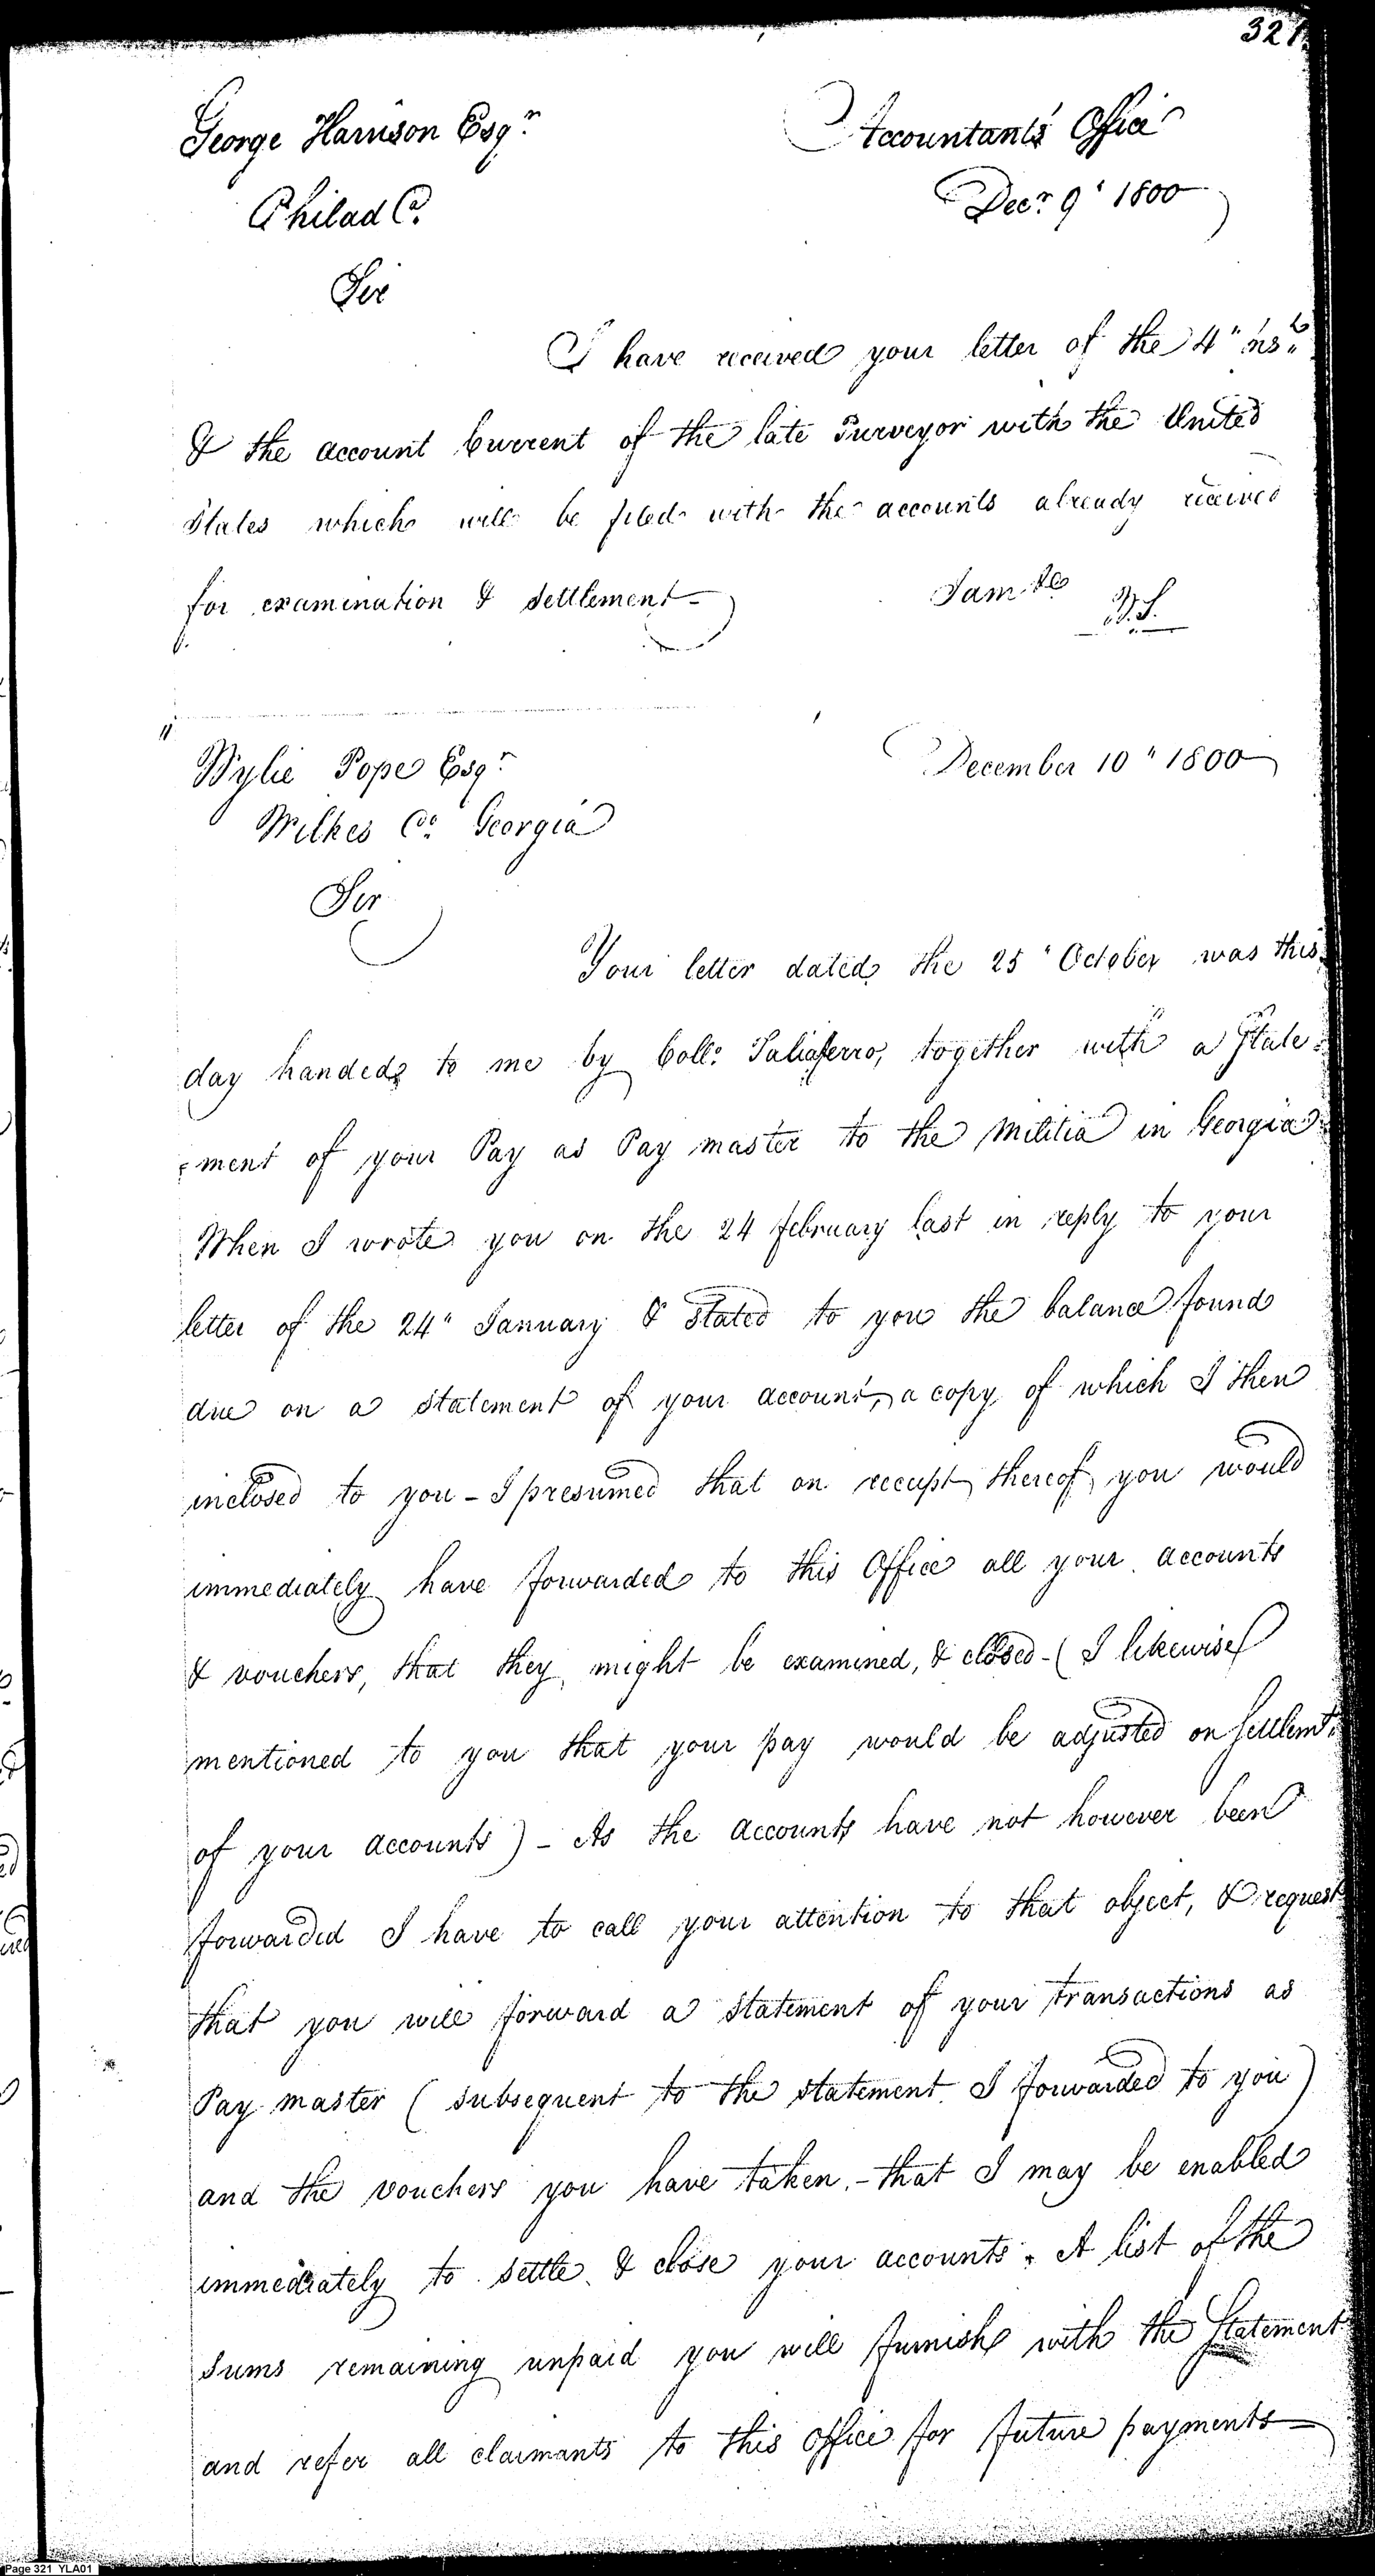 321
George Harrison Esqr
Accountants Office
Philad Ca.
Decr 9" 1800
Sir
I have received your letter of the 4" inst
& the account Current of the late Purveyor with the United
States which will be filed with the accounts already received
for examination & settlement
I am &c
W.S.
Wylie Pope Esqr
December 10" 1800
Wilkes Co. Georgia
Sir
Your letter dated the 25" October was this
day handed to me by Coll. Taliaferro, together with a State=
=ment of your Pay as Pay master to the Militia in Georgia
When I wrote you on the 24 february last in reply to your
letter of the 24" January & stated to you the balance found
due on a statement of your account, a copy of which I then
inclosed to you - I presumed that on receipt thereof you would
immediately have forwarded to this Office all your accounts
& vouchers, that they might be examined, & closed - (I likewise
mentioned to you that your pay would be adjusted on settlemt.
of your accounts) - As the accounts have not however been
forwarded I have to call your attention to that object, & request
that you will forward a statement of your transactions as
Pay master (subsequent to the statement I forwarded to you)
and the vouchers you have taken. - that I may be enabled
immediately to settle & close your accounts. A list of the
sums remaining unpaid you will furnish with the Statement
and refer all claimants to this office for future payments
Page 321 YLA01